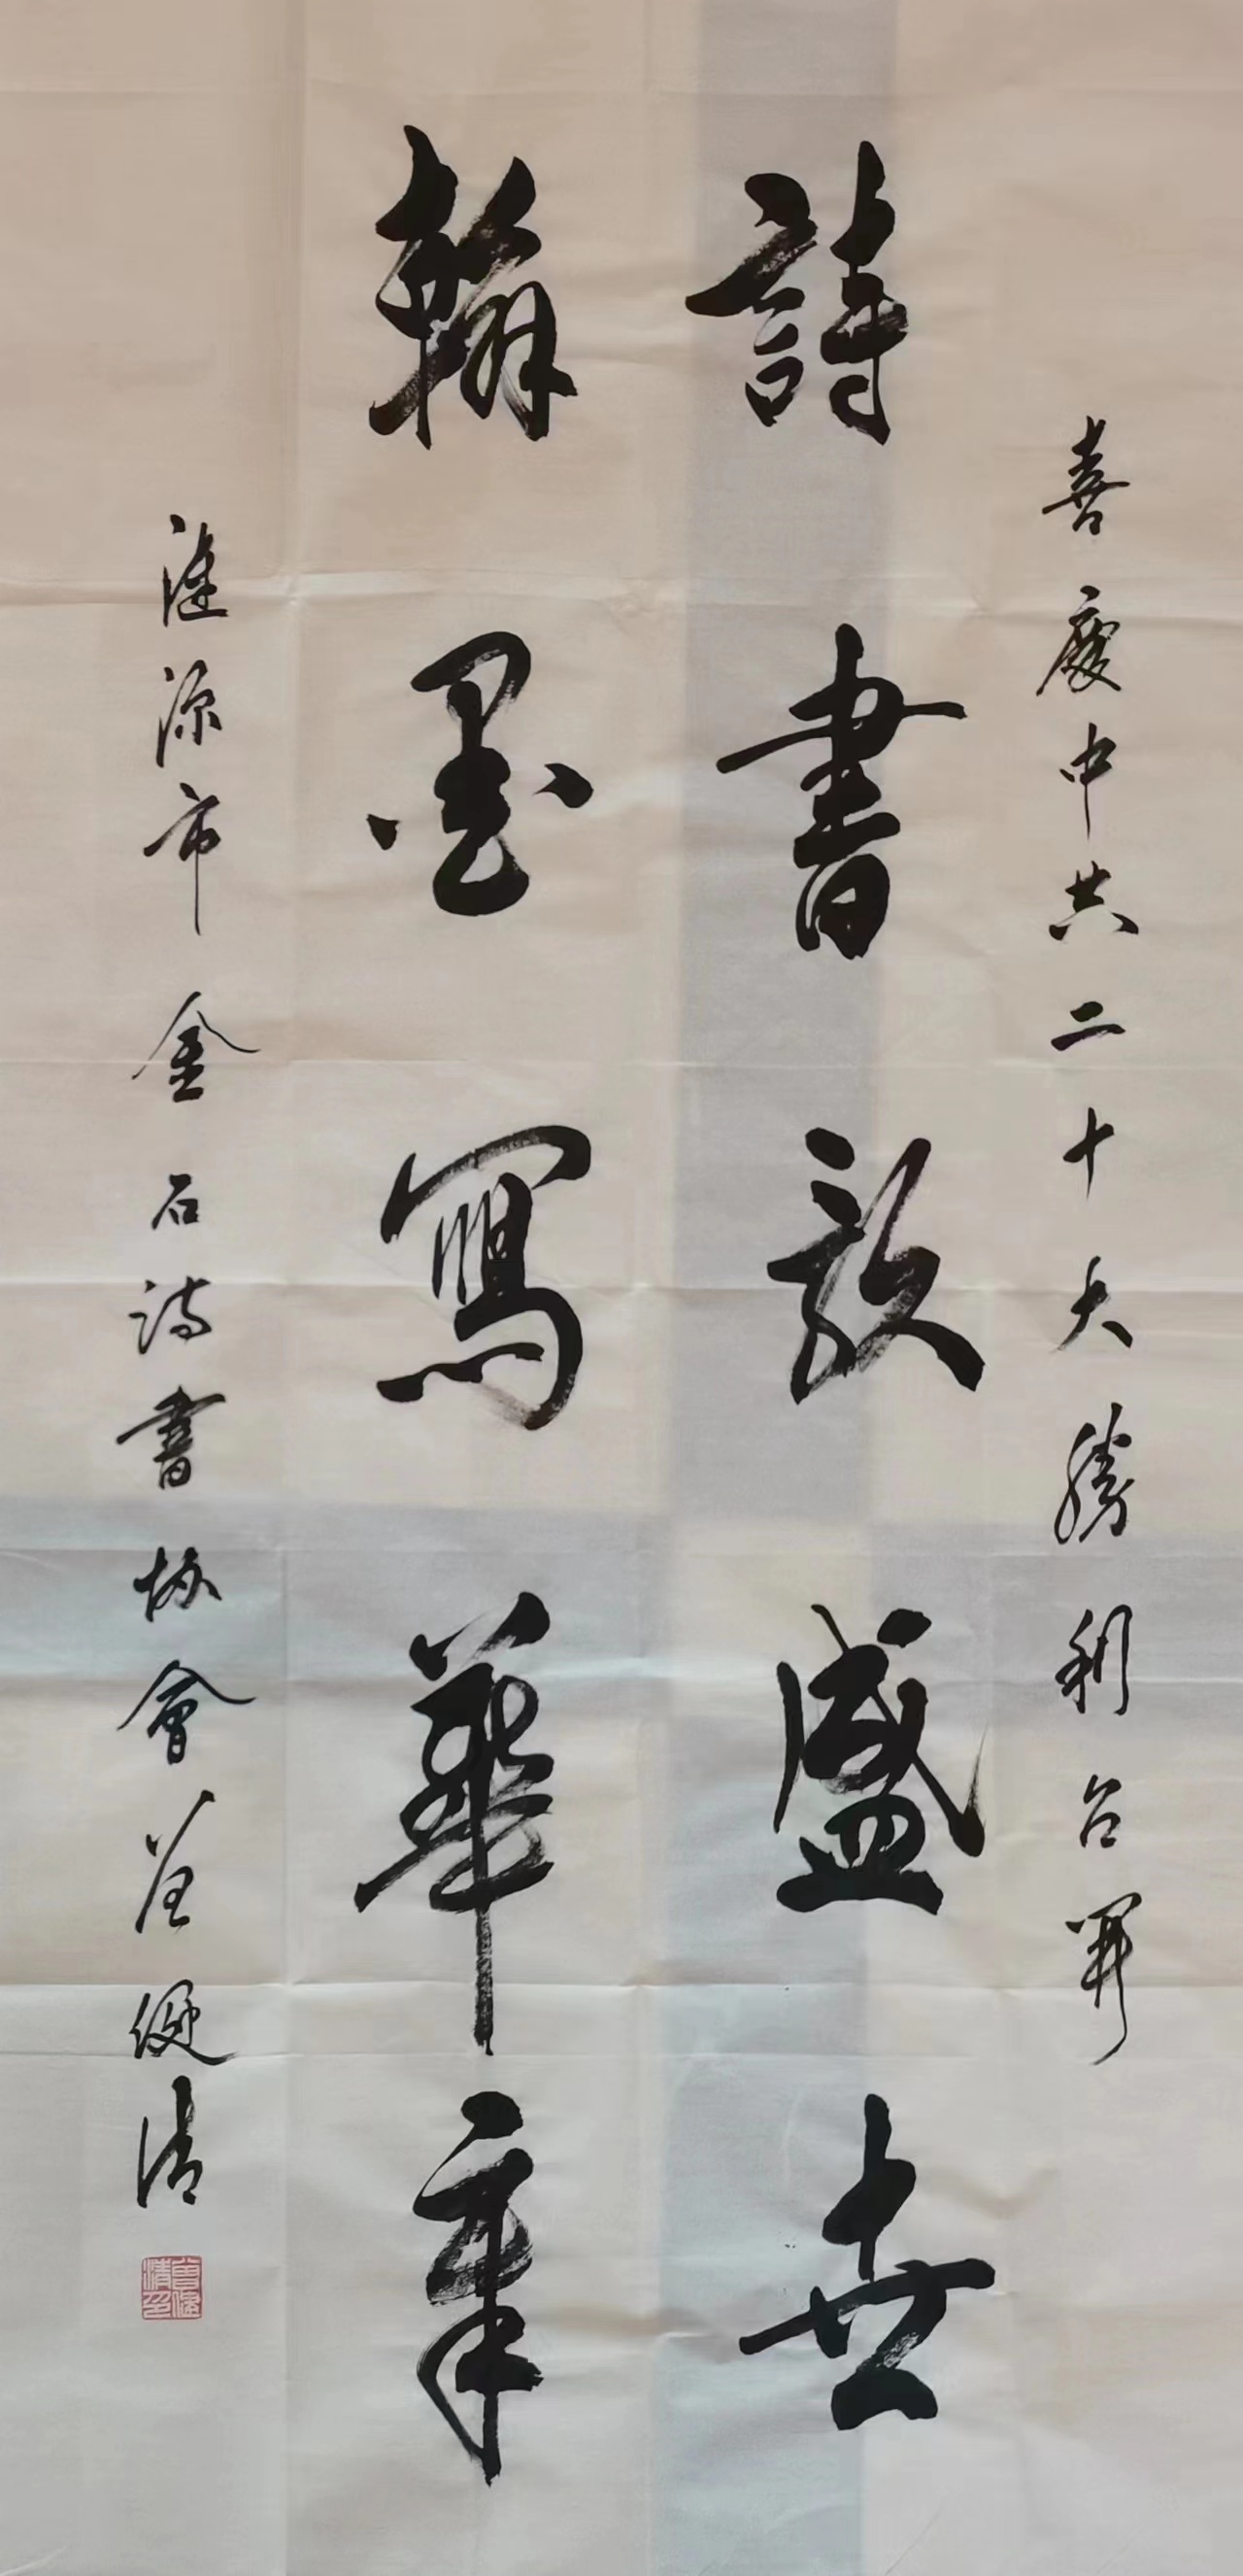 喜慶中共二十大勝利召開
詩書歌盛世
翰墨寫華章
漣源市金石詩書協會 清